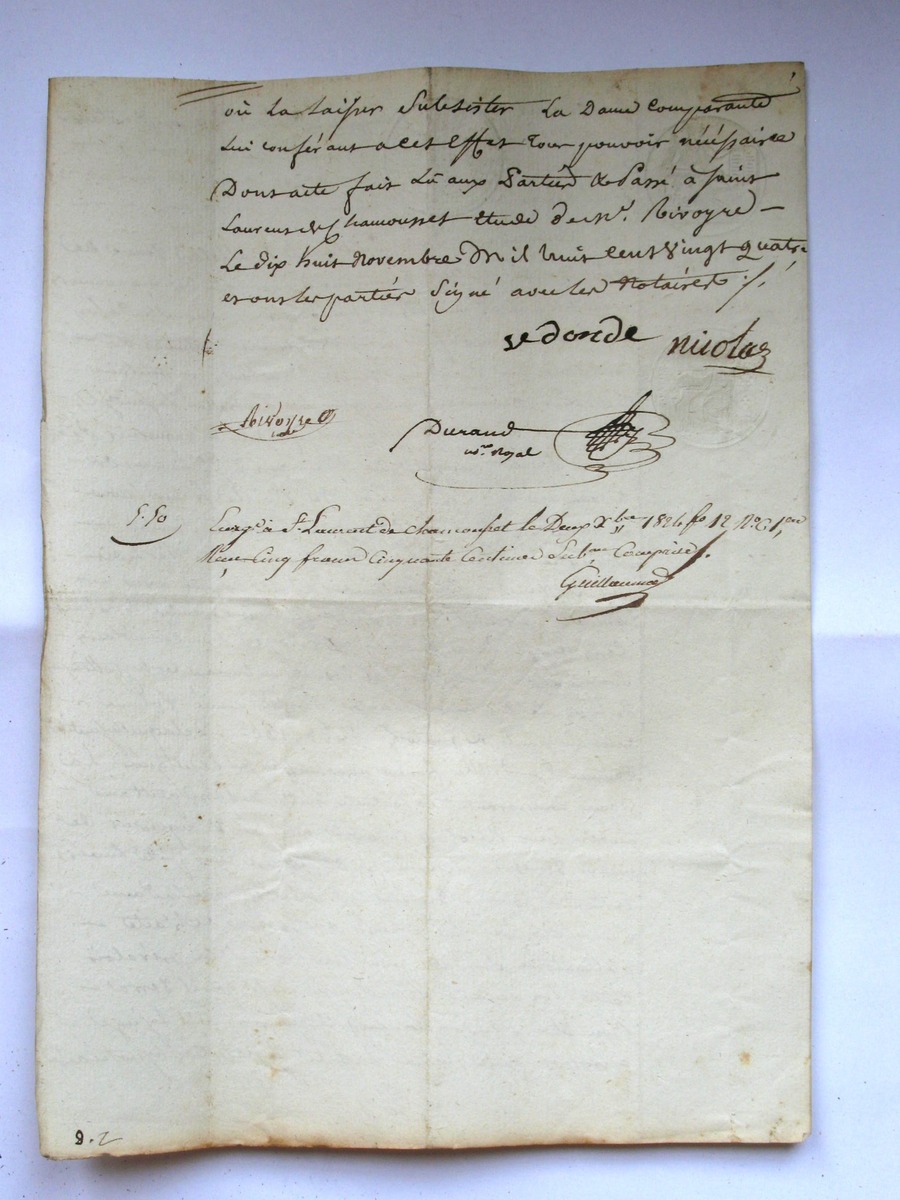 où la laisser subsister la dame comparante
lui conférant a cet effet tout pouvoir nécéssaire
Dont acte fait lû aux parties & Passé à saint
Laurent de Chamousset étude de Mr. Rivoyre
Le dix huit Novembre Mil huit cent vingt quatre
et ont les parties signé avec les Notaires ./.
redonde nicolas
Rivoyre
Durand
nre. Royal
5.50
Enrgé. à St. Laurent de chamousset le Deux Xbre 1824 fo 12 Ro C 1ere
Reçu Cinq francs Cinquante Centimes Subon Comprise ./.
Guillaumot
9.2